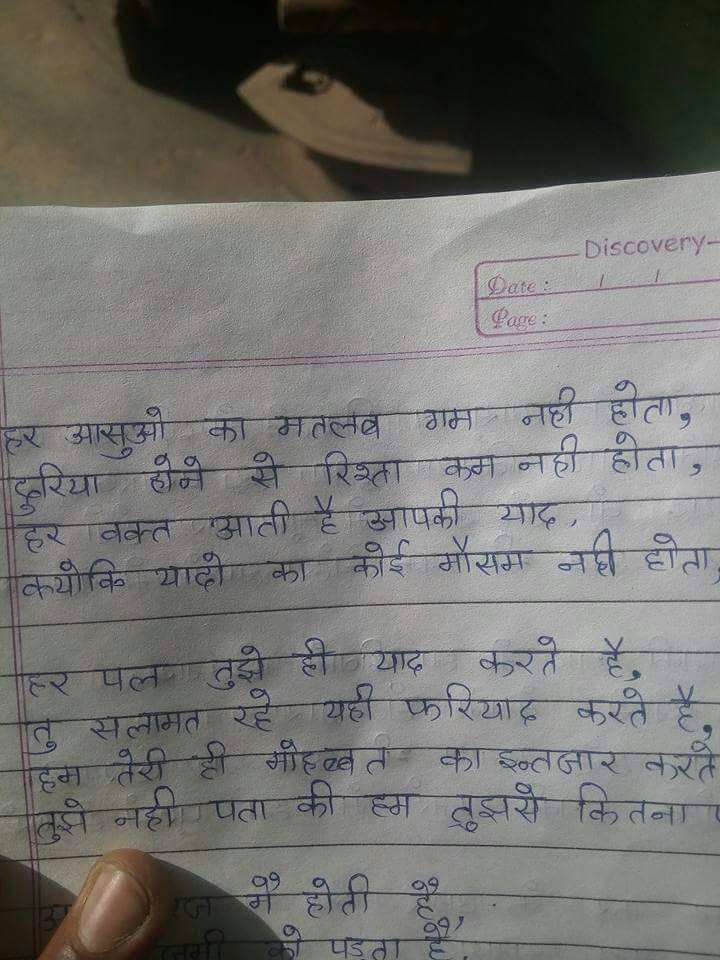 Discovery
Date : / /
Page :
हर आसुओ का मतलब गम नही होता,
दुरिया होने से रिश्ता कम नही होता,
हर वक्त आती है आपकी याद,
क्योकि यादो का कोई मौसम नही होता,
हर पल तुझे ही याद करते है,
तु सलामत रहे यही फरियाद करते है,
हम तेरी ही मोहब्बत का इन्तजार करते
तुझे नही पता की हम तुझसे कितना
में होती है,
को पड़ता है,